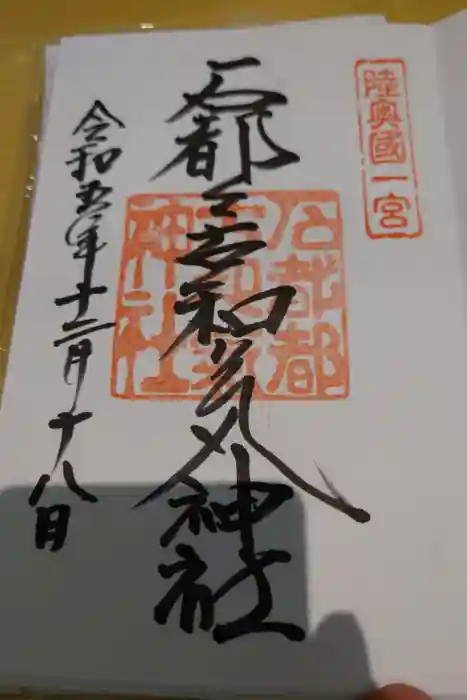 陸奥國一宮
石都々古和気神社
石都都
古和氣
神社
令和五年十二月十八日